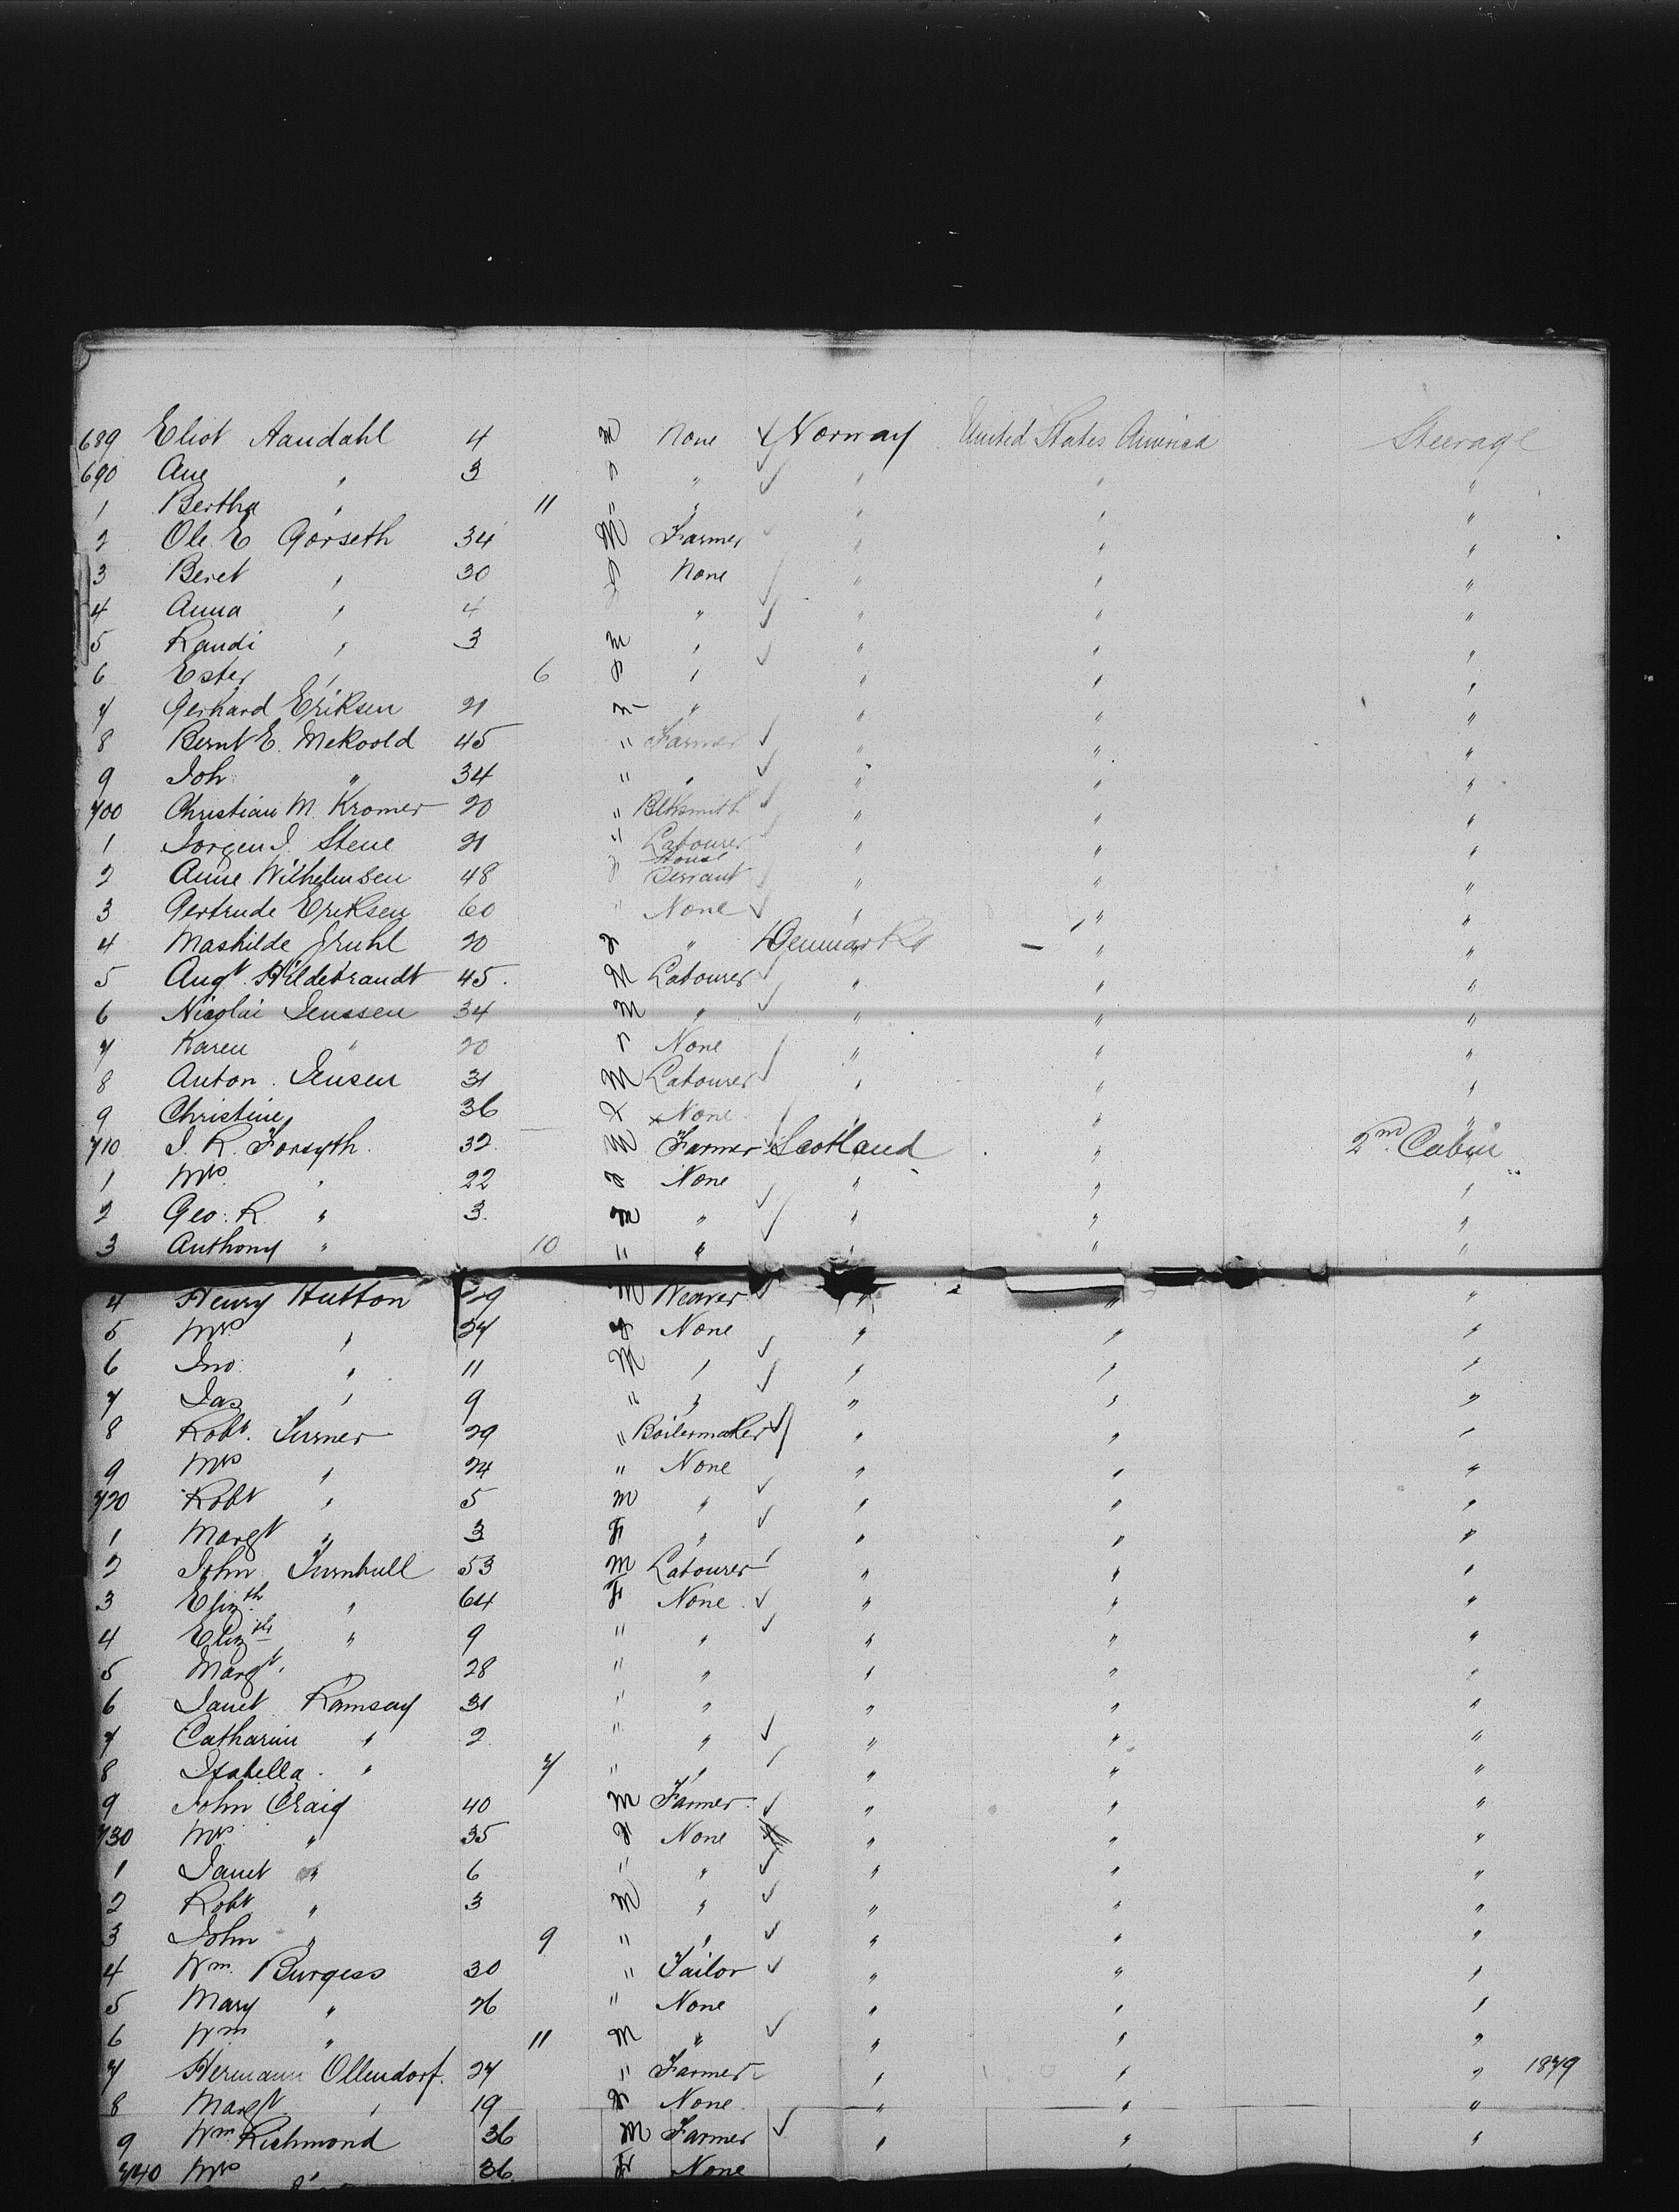 689 Eliot Aandahl 4 M None Norway United States America Steerage
690 Ane " 3 F " " " "
1 Bertha " 11 " " " " "
2 Ole E Gorseth 34 M Farmer " " "
3 Beret " 30 F None " " "
4 Anna " 4 " " " "
5 Randi " 3 M " " " "
6 Ester " 6 F " " " "
7 Gerhard Eriksen 21 M " " " "
8 Bernt E. Mekvold 45 " Farmer " " "
9 Joh " 34 " " " " "
700 Christian M. Kromer 20 " Blksmith " " "
1 Jorgen J. Stene 21 " Labourer " " "
2 Anne Wilhelmsen 48 F House Servant " " "
3 Gertrude Eriksen 60 " None " " "
4 Mashilde Gruhl 20 F " Denmark " "
5 Augt. Hildebrandt 45. M Labourer " " "
6 Nicolai Jenssen 34 M " " " "
7 Karen " 20 F None " " "
8 Anton Jensen 31 M Labourer " " "
9 Christine " 36 F None " " "
710 J. R. Forsyth. 32 M Farmer Scotland " 2nd Cabin
1 Mrs " 22 F None " " "
2 Geo. R. " 3. M " " " "
3 Anthony " 10 " " " " "
4 Henry Hutton 29 M Weaver " " "
5 Mrs " 27 F None " " "
6 Jno. " 11 M " " " "
7 Jas " 9 " " " " "
8 Robt. Turner 29 " Boilermaker " " "
9 Mrs " 24 " None " " "
720 Robt " 5 M " " " "
1 Margt " 3 F " " " "
2 John Turnbull 53 M Labourer " " "
3 Elizth " 64 F None " " "
4 Elizth " 9 " " " " "
5 Margt. " 28 " " " " "
6 Janet Ramsay 31 " " " " "
7 Catharin " 2 " " " " "
8 Isabella " 7 " " " " "
9 John Craig 40 M Farmer " " "
730 Mrs " 35 F None " " "
1 Janet " 6 " " " " "
2 Robt " 3 M " " " "
3 John " 9 " " " " "
4 Wm. Burgess 30 " Tailor " " "
5 Mary " 26 " None " " "
6 Wm " 11 M " " " "
7 Hermann Ollendorf. 27 " Farmer " " " 1879
8 Margt. " 19 F None " " "
9 Wm. Richmond 36 M Farmer " " "
740 Mrs " 36 F None